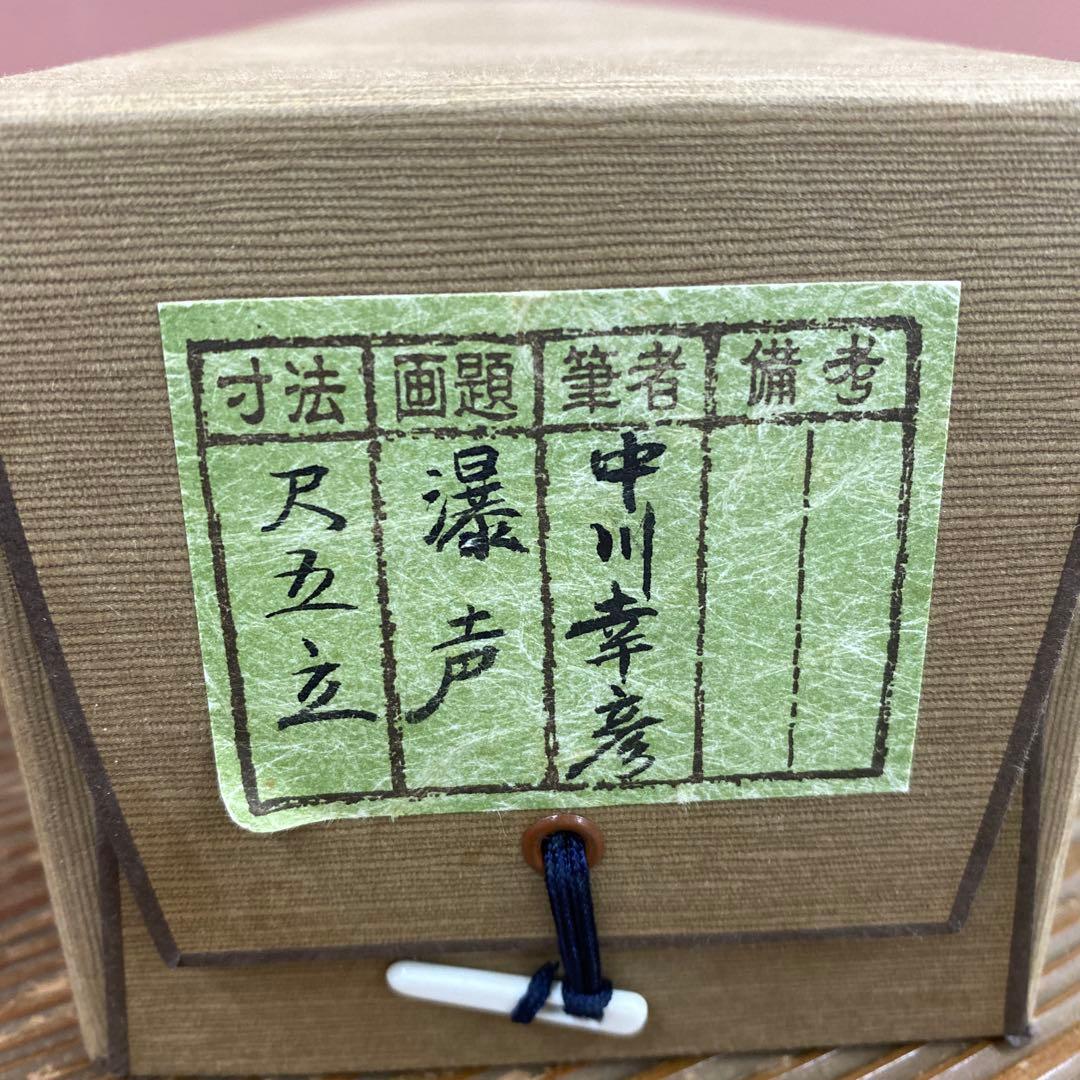 備考
筆者
中川幸彦
画題
瀑声
寸法
尺五立